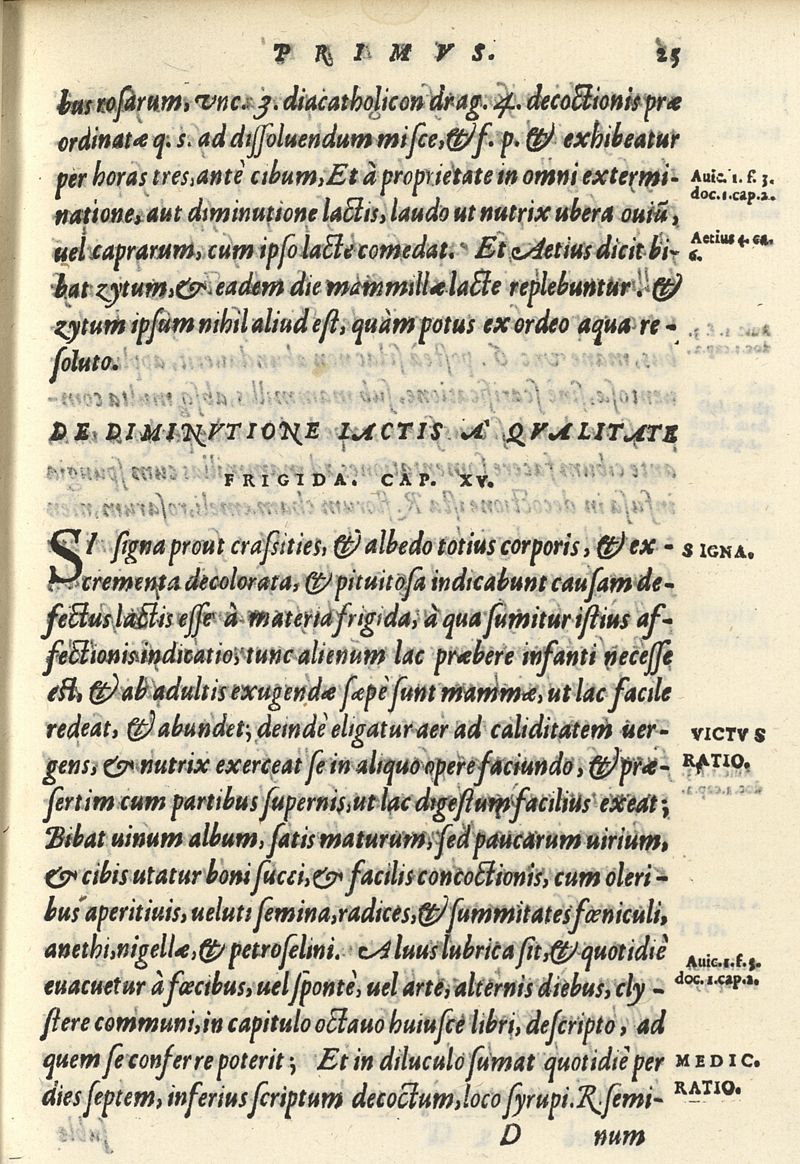 PRIMVS. 25
bus rosarum, vnc. 3. diacatholicon drag. 4. decoctionis præ
ordinatæ q. s. ad dissoluendum misce, & f. p. & exhibeatur
per horas tres, antè cibum, Et à proprietate in omni extermi-
Auic. 1. f. 3.
doc. 1. cap. 2.
natione, aut diminutione lactis, laudo ut nutrix ubera ouiũ,
uel caprarum, cum ipso lacte comedat. Et Aetius dicit bi-
Aetius 4. ca.
6.
bat zytum, & eadem die mammillæ lacte replebuntur. &
zytum ipsum nihil aliud est, quàm potus ex ordeo aqua re-
soluto.
DE DIMINVTIONE LACTIS A' QVALITATE
FRIGIDA. CAP. XV.
SI signa prout crassities, & albedo totius corporis, & ex-
SIGNA.
crementa decolorata, & pituitosa indicabunt causam de-
fectus lactis esse à materia frigida, à qua sumitur istius af-
fectionis indicatio, tunc alienum lac præbere infanti necesse
est, & ab adultis exugendæ sæpè sunt mammæ, ut lac facile
redeat, & abundet; deindè eligatur aer ad caliditatem uer-
VICTVS
gens, & nutrix exerceat se in aliquo opere faciundo, & præ-
RATIO.
sertim cum partibus supernis, ut lac digestum facilius exeat;
Bibat uinum album, satis maturum, sed paucarum uirium,
& cibis utatur boni succi, & facilis concoctionis, cum oleri-
bus aperitiuis, ueluti semina, radices, & summitates fœniculi,
anethi, nigellæ, & petroselini. Aluus lubrica sit, & quotidiè
Auic. 1. f. 3.
euacuetur à fœcibus, uel spontè, uel arte, alternis diebus, cly-
doc. 1. cap. 2.
stere communi, in capitulo octauo huiusce libri, descripto, ad
quem se conferre poterit; Et in diluculo sumat quotidiè per
MEDIC.
dies septem, inferius scriptum decoctum, loco syrupi. R. semi-
RATIO.
D num